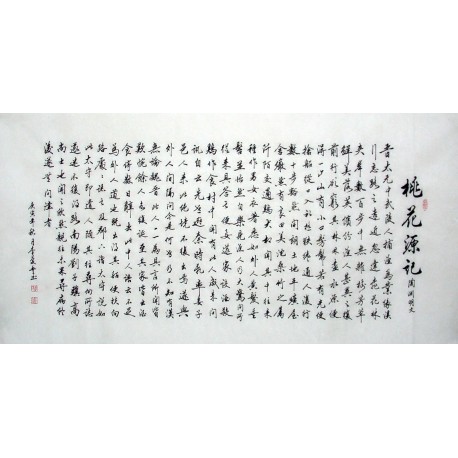 桃花源記
陶淵明文
晉太元中武陵人捕漁為業緣溪
行忘路之遠近忽逢桃花林
夾岸數百步中無雜樹芳草
鮮美落英繽紛漁人甚異之復
前行欲窮其林林盡水源便
得一山山有小口髣髴若有光便
捨船從口入初極狹纔通人復行
數十步豁然開朗土地平曠屋
舍儼然有良田美池桑竹之屬
阡陌交通雞犬相聞其中往來
種作男女衣著悉如外人黃髮垂
髫並怡然自樂見漁人乃大驚問所
從來具答之便要還家設酒殺
雞作食村中聞有此人咸來問
訊自云先世避秦時亂率妻子
邑人來此絕境不復出焉遂與
外人間隔問今是何世乃不知有漢
無論魏晉此人一一為具言所聞皆
歎惋餘人各復延至其家皆出酒
食停數日辭去此中人語云不足
為外人道也既出得其船便扶向
路處處誌之及郡下詣太守說如
此太守即遣人隨其往尋向所誌
遂迷不復得路南陽劉子驥高
尚士也聞之欣然規往未果尋病終
後遂無問津者
庚寅年秋月